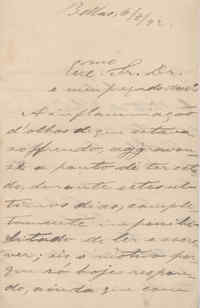 Bellas, 6/8/92.
Exmo Sr. Dr.
e meu prezado
A inflammação
d'olhos de que estava
soffrendo, aggravou-
se a ponto de ter est
do, durante este
dias, comple
tamente impossibi
litado de ler e escre
ver; eis o motivo por
que só hoje respon
do, ainda que com